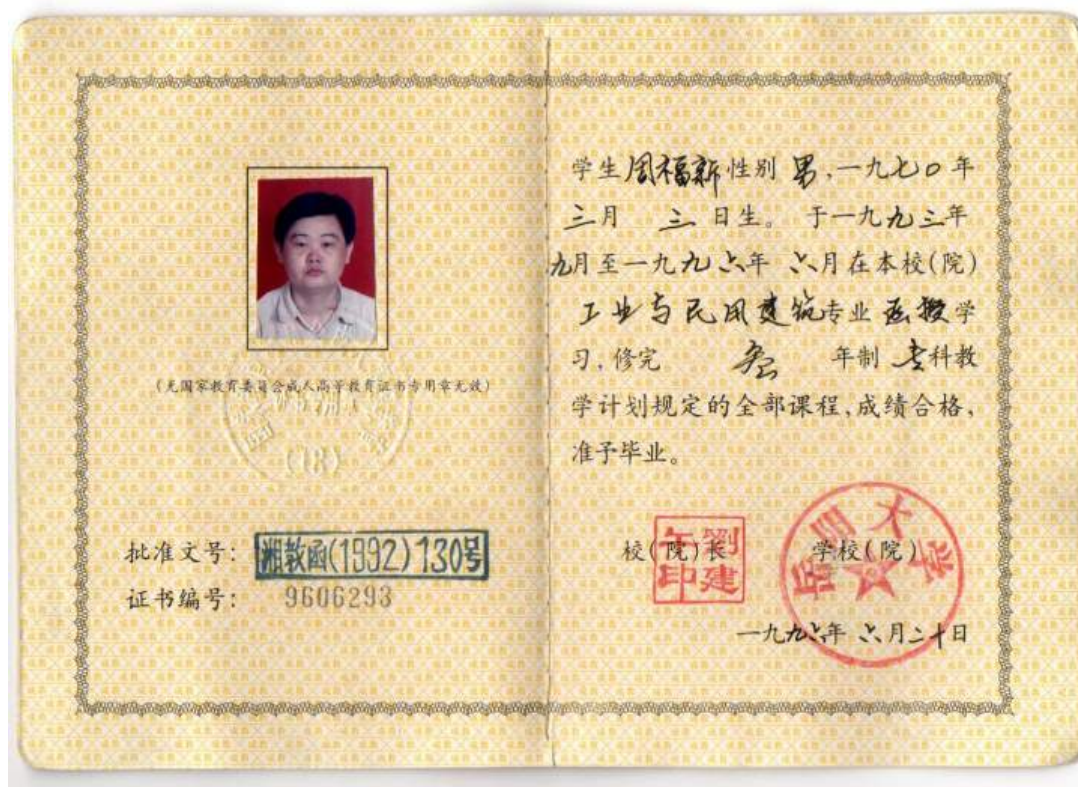 (无国家教育委员会成人高等教育证书专用章无效)
(18)
批准文号: 湘教函(1992)130号
证书编号: 9606293
学生周福新性别 男,一九七〇年
三月 三 日生。 于一九九三年
九月至一九九六年 六月在本校(院)
工业与民用建筑专业函授学
习,修完 叁 年制 专科教
学计划规定的全部课程,成绩合格,
准予毕业。
校(院)长 劉建午印
学校(院) 岳阳大学
一九九六年 六月二十日